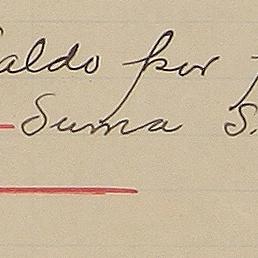 aldo por
Suma S.